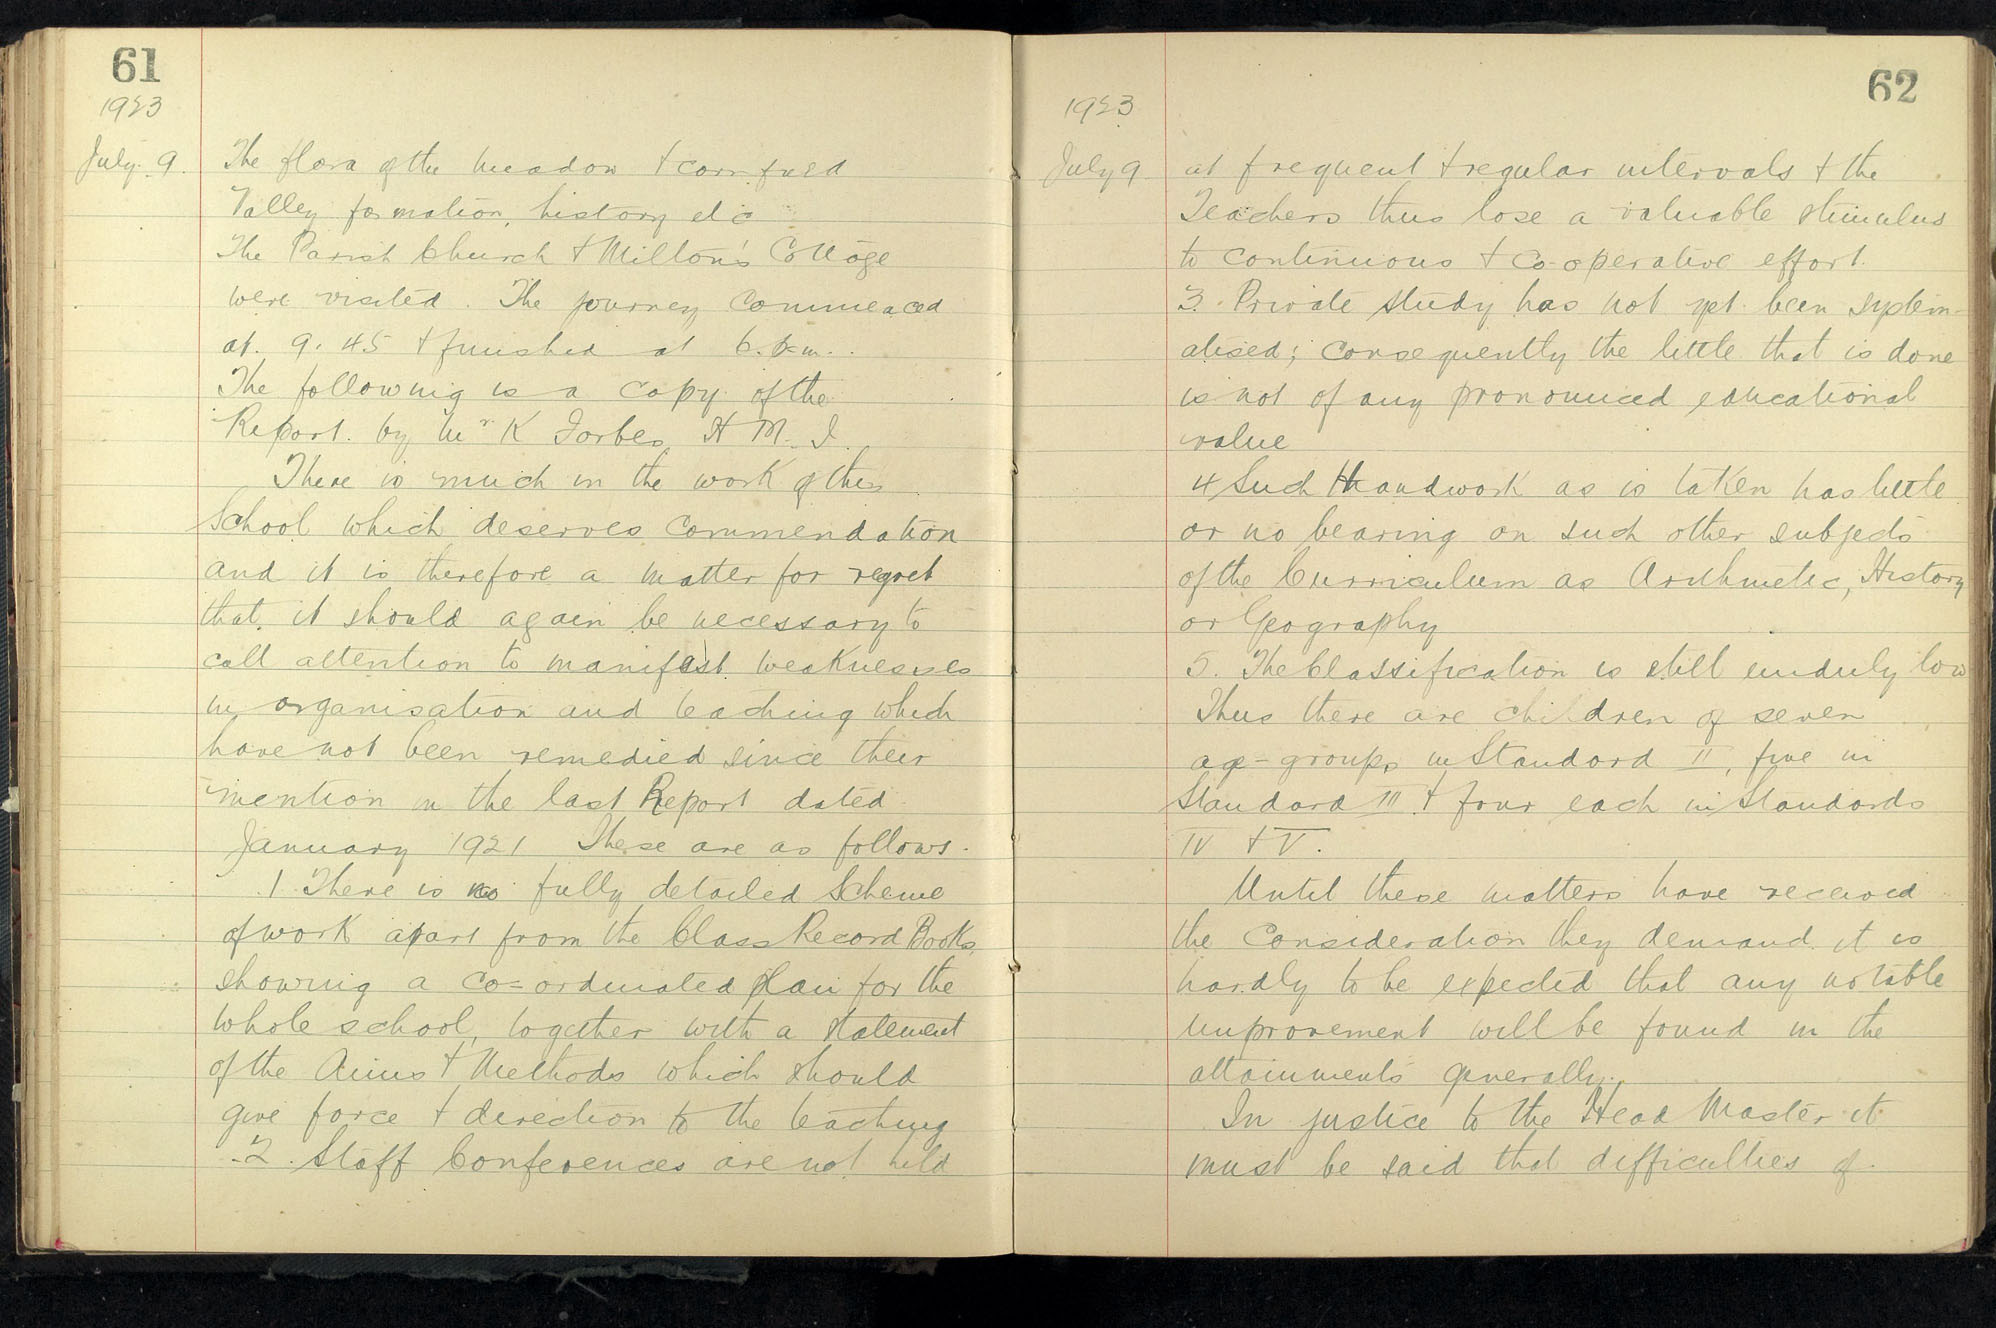 61
1923
July 9. The flora of the meadow & corn field
Valley formation, history etc
The Parish Church & Milton's Cottage
were visited. The journey commenced
at 9.45 & finished at 6.p.m.
The following is a copy of the
Report by Mr K Forbes H.M.I.
There is much in the work of this
School which deserves commendation
and it is therefore a matter for regret
that it should again be necessary to
call attention to manifest weaknesses
in organisation and teaching which
have not been remedied since their
mention in the last Report dated
January 1921 These are as follows.
1 There is no fully detailed Scheme
of work apart from the Class Record Books,
showing a co=ordinated plan for the
whole school, together with a statement
of the Aims & Methods which should
give force & direction to the teaching
2. Staff Conferences are not held
62
1923
July 9 at frequent & regular intervals & the
Teachers thus lose a valuable stimulus
to continuous & co-operative effort.
3. Private study has not yet been system-
atised; consequently the little that is done
is not of any pronounced educational
value
4 Such Handwork as is taken has little
or no bearing on such other subjects
of the Curriculum as Arithmetic, History
or Geography
5. The Classification is still unduly low
Thus there are children of seven
age-groups in Standard II, five in
Standard III & four each in Standards
IV & V.
Until these matters have received
the consideration they demand it is
hardly to be expected that any notable
improvement will be found in the
attainments generally.
In justice to the Head Master it
must be said that difficulties of